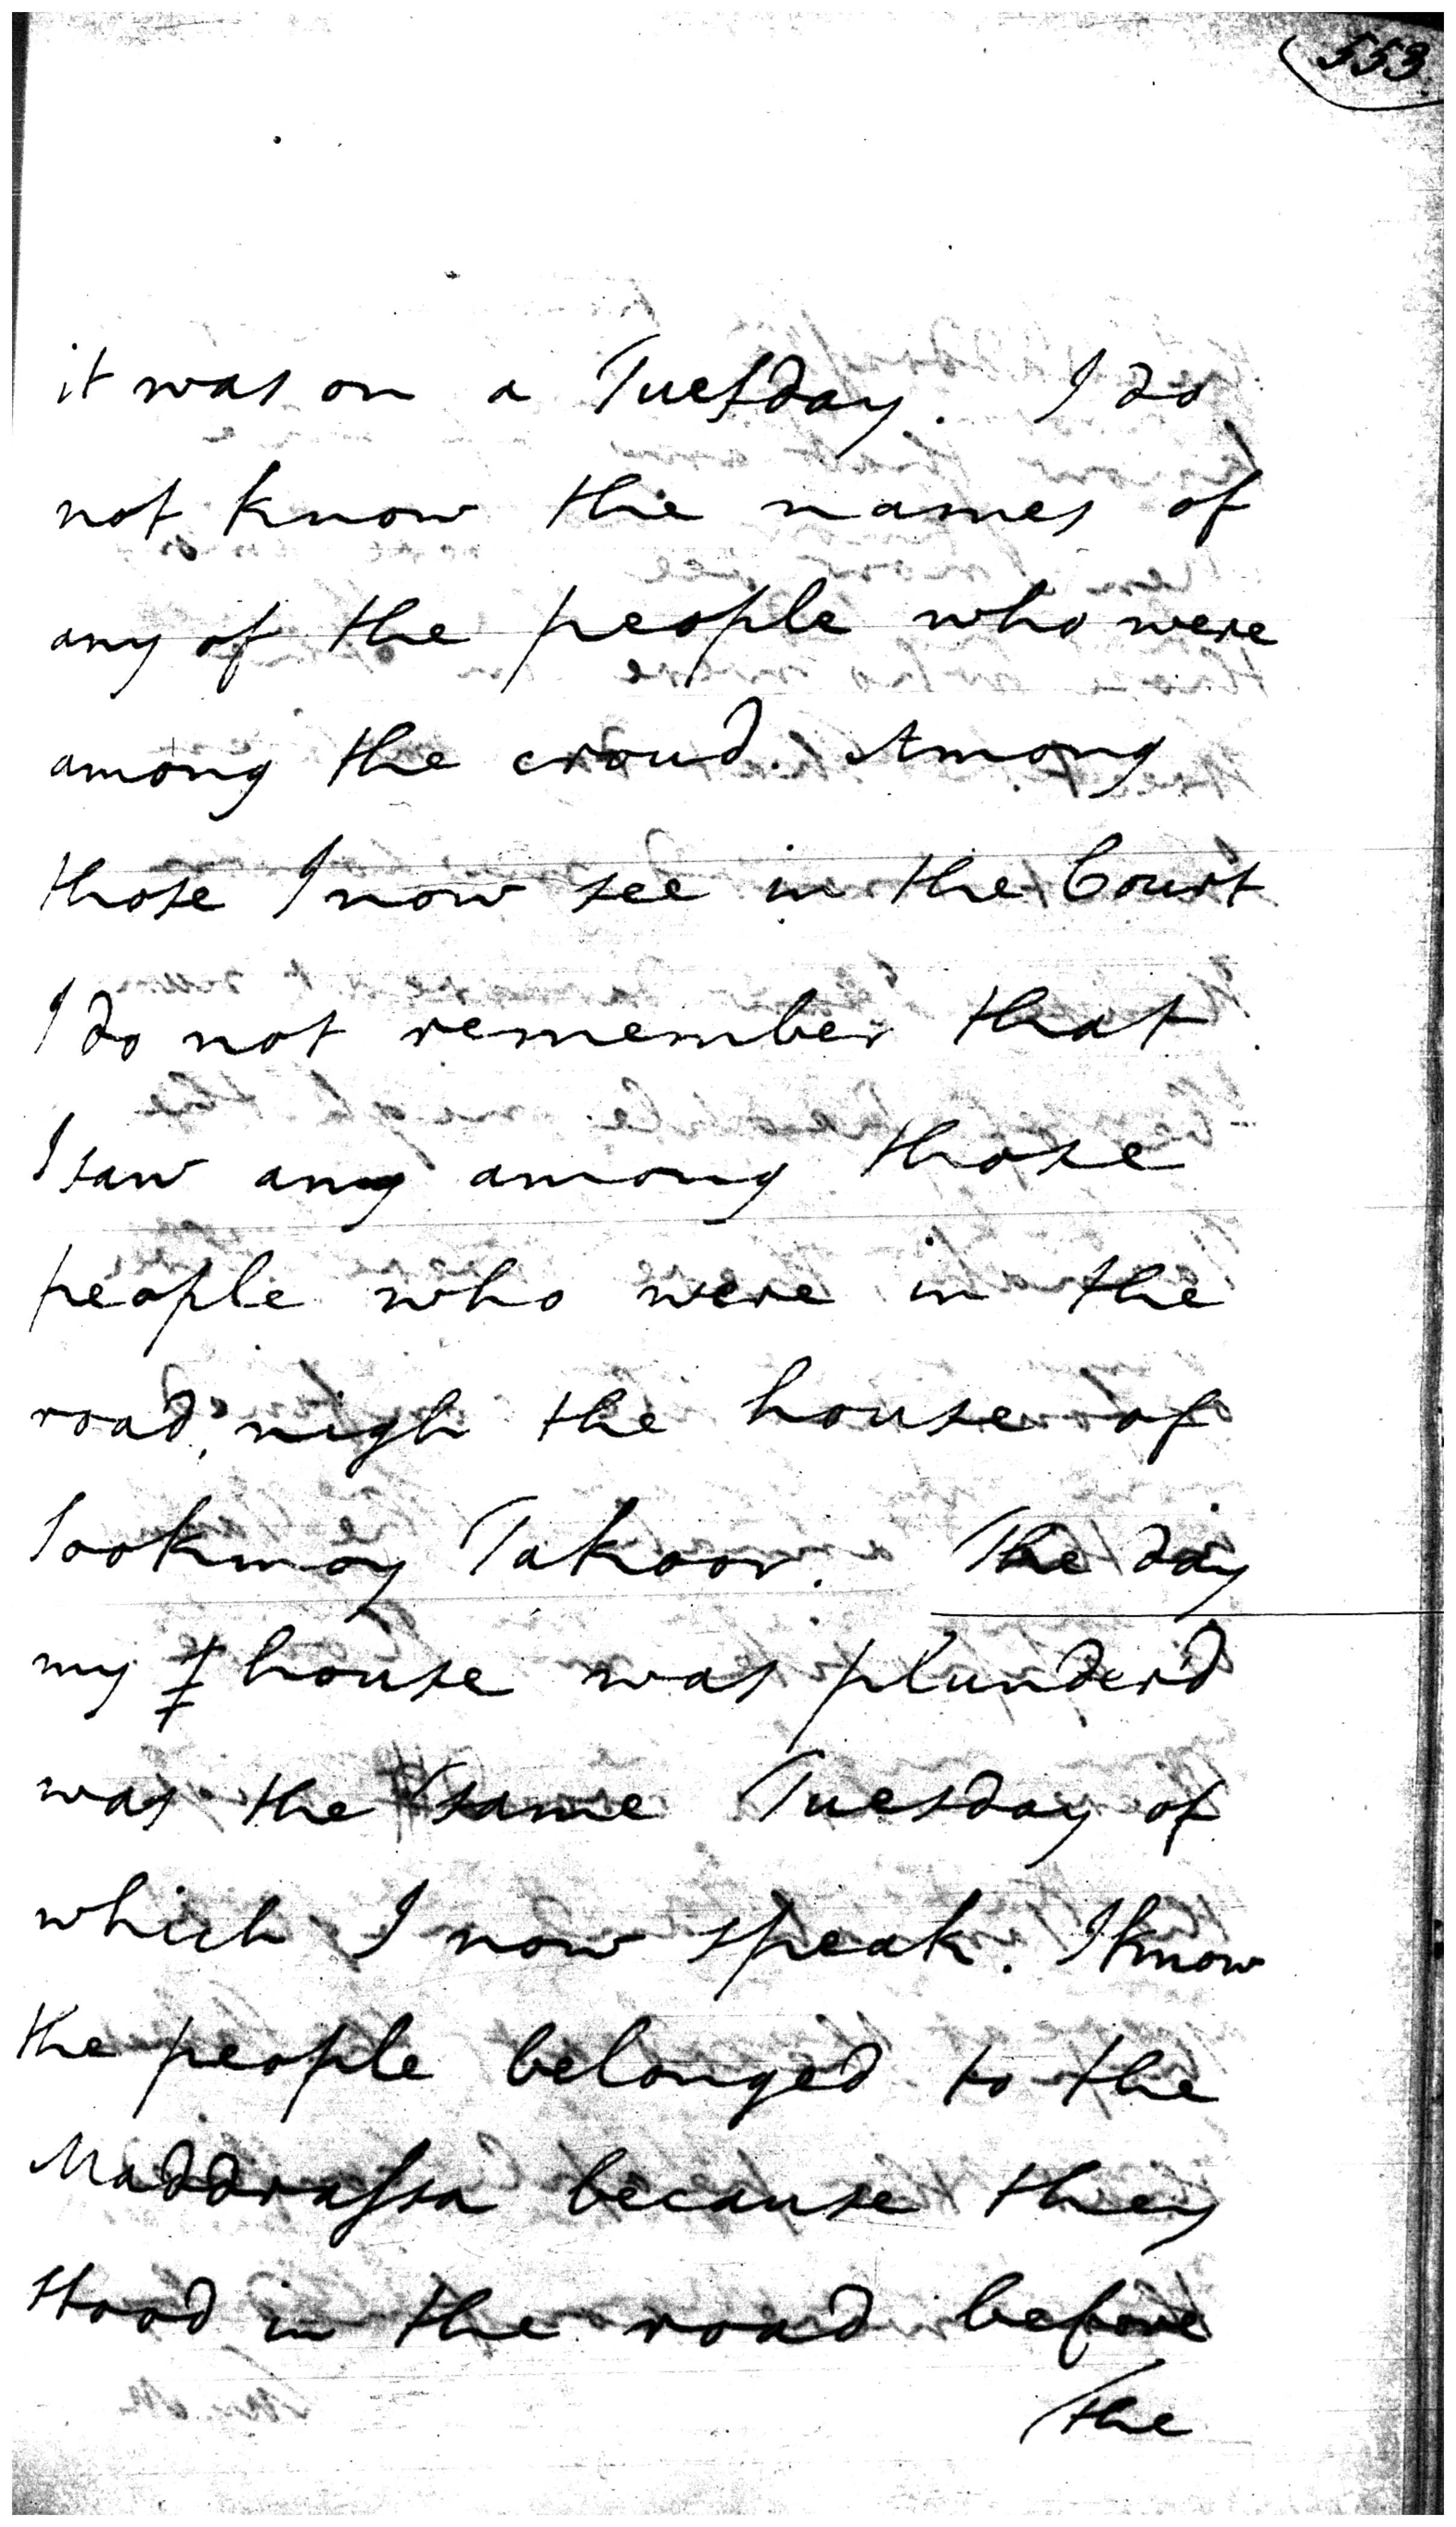 553
it was on a Tuesday. I do
not know the names of
any of the people who were
among the croud. Among
those I now see in the Court
I do not remember that
I saw any among those
people who were in the
road, nigh the house of
Sookmoy Takoor. The day
my house was plunderd
was the same Tuesday of
which I now speak. I know
the people belonged to the
Maddrassa because they
stood in the road before
the